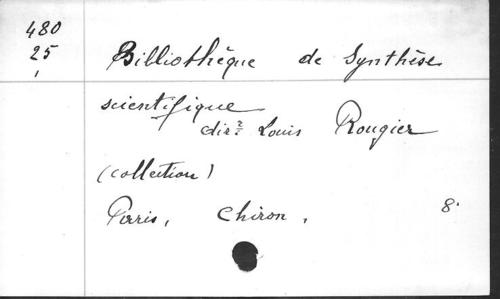 480
25
Bibliothèque de Synthèse
scientifique
dirr Louis Rougier
(collection)
Paris, Chiron, 8°